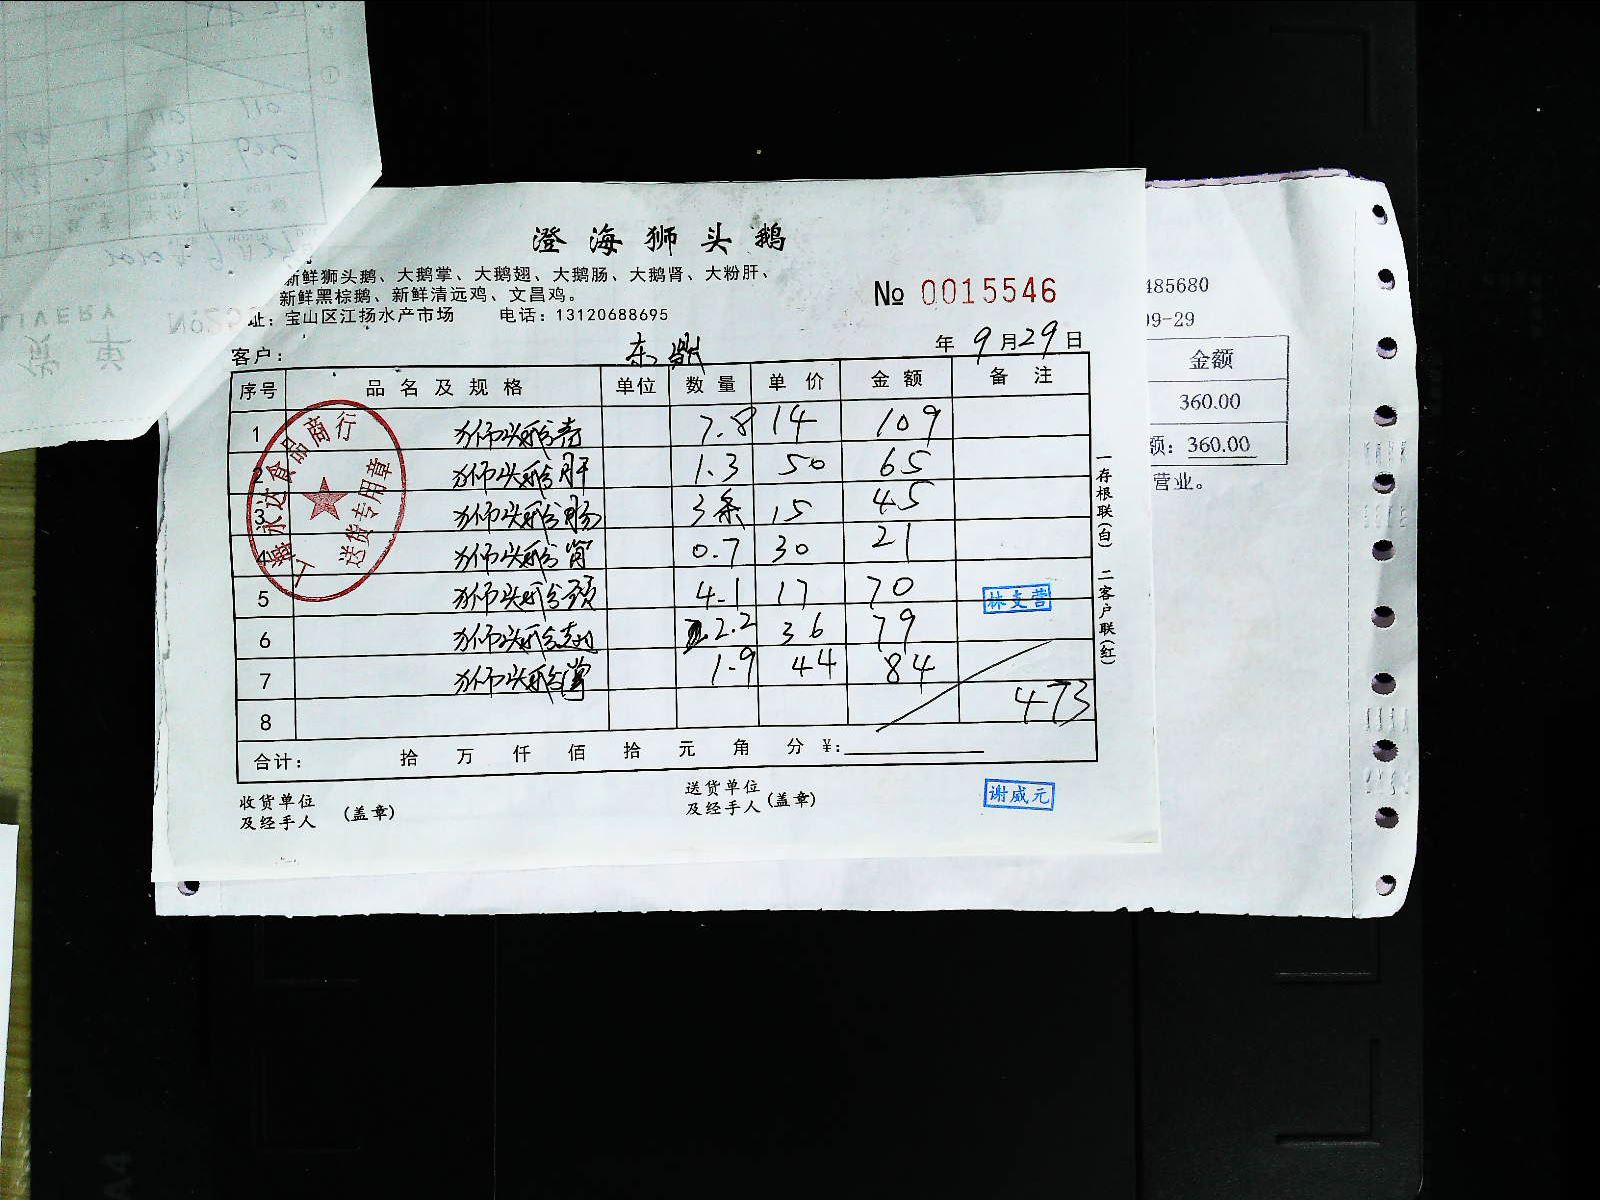 澄海狮头鹅
新鲜狮头鹅、大鹅掌、大鹅翅、大鹅肠、大鹅肾、大粉肝、
新鲜黑棕鹅、新鲜清远鸡、文昌鸡。
址：宝山区江扬水产市场 电话：13120688695
№ 0015546
客户： 东 年 9 月 29 日
序号 品名及规格 单位 数量 单价 金额 备注
1 狮头鹅 7.8 14 109
2 狮头鹅肝 1.3 50 65
3 狮头鹅肠 3条 15 45
4 狮头鹅肾 0.7 30 21
5 狮头鹅头 4.1 17 70
6 狮头鹅翅 2.2 36 79
7 狮头鹅掌 1.9 44 84
8 473
合计： 拾 万 仟 佰 拾 元 角 分 ¥：
收货单位
及经手人 (盖章)
送货单位
及经手人 (盖章)
一存根联(白) 二客户联(红)
上海永达食品商行
送货专用章
林支营
谢威元
485680
09-29
金额
360.00
额：360.00
营业。
LIVERY
货单
A4